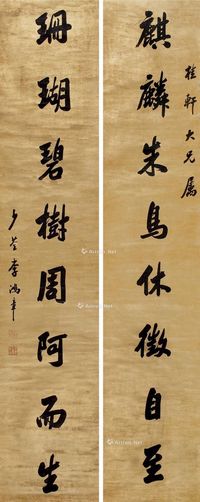 桂軒大兄屬
麒麟朱鳥休徵自至
珊瑚碧樹周阿而生
少荃李鴻章